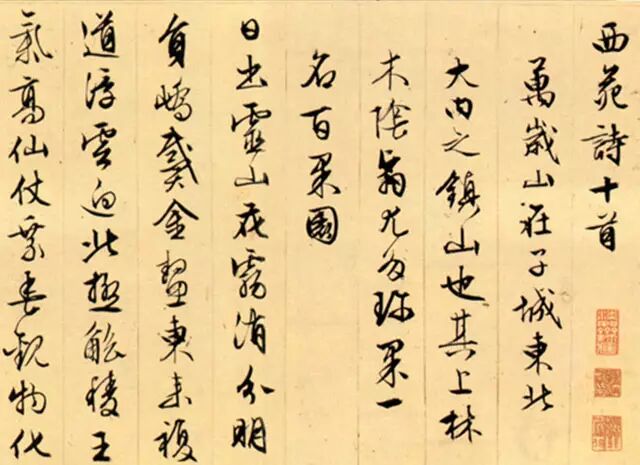 西苑詩十首
萬歲山在子城東北
大內之鎮山也其上林
木陰翳尤多珍果一
名百果園
日出靈山花霧消分明
員嶠戴金鰲東來複
道浮雲迥北極觚稜王
氣高仙仗乘春觀物化